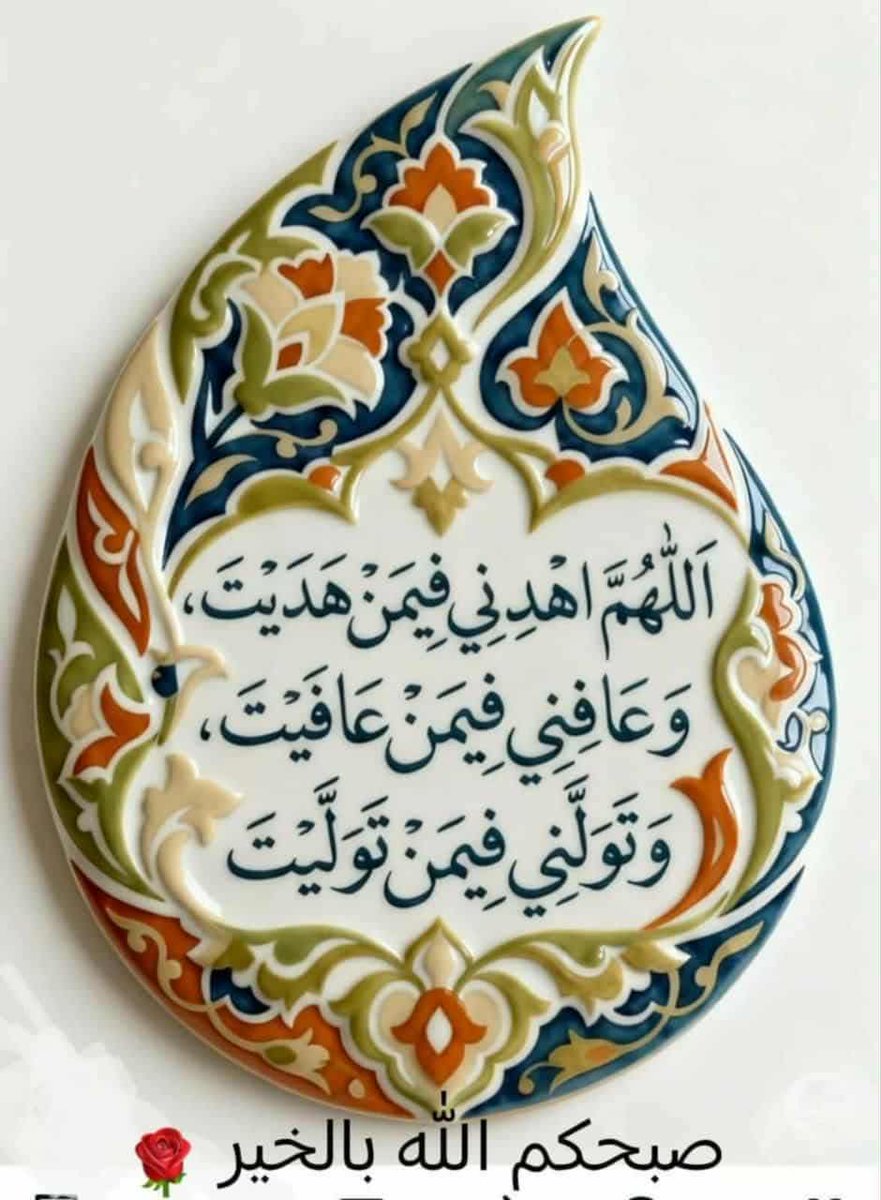 اَللّٰهُمَّ اهْدِنِي فِيمَنْ هَدَيْتَ،
وَعَافِنِي فِيمَنْ عَافَيْتَ،
وَتَوَلَّنِي فِيمَنْ تَوَلَّيْتَ
صبحكم الله بالخير 🌹